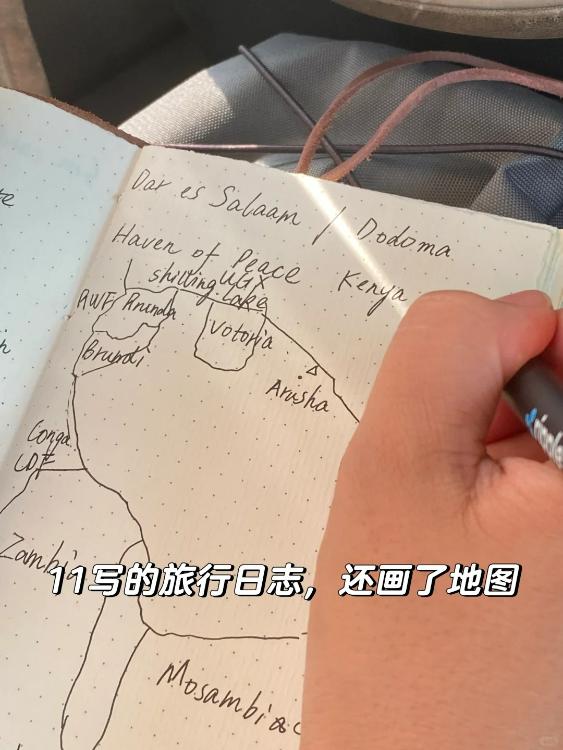 Dar es Salaam / Dodoma
Haven of Peace
Kenya
shilling UGX
RWF Rrunda
Lake
Votoria
Brundi
Arusha
Conga
CDF
Zambi
11写的旅行日志，还画了地图
Mosambi